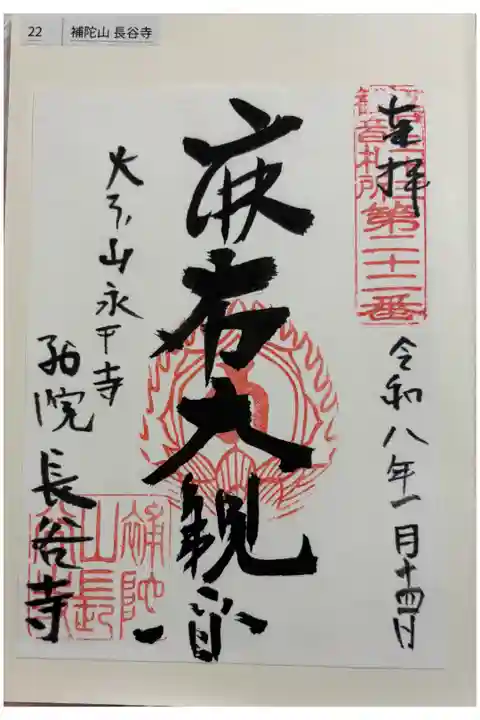 22 補陀山 長谷寺
奉拝
観音札所
第二十二番
令和八年一月十四日
麻布大観音
大本山永平寺
別院 長谷寺
補陀
山長
谷寺